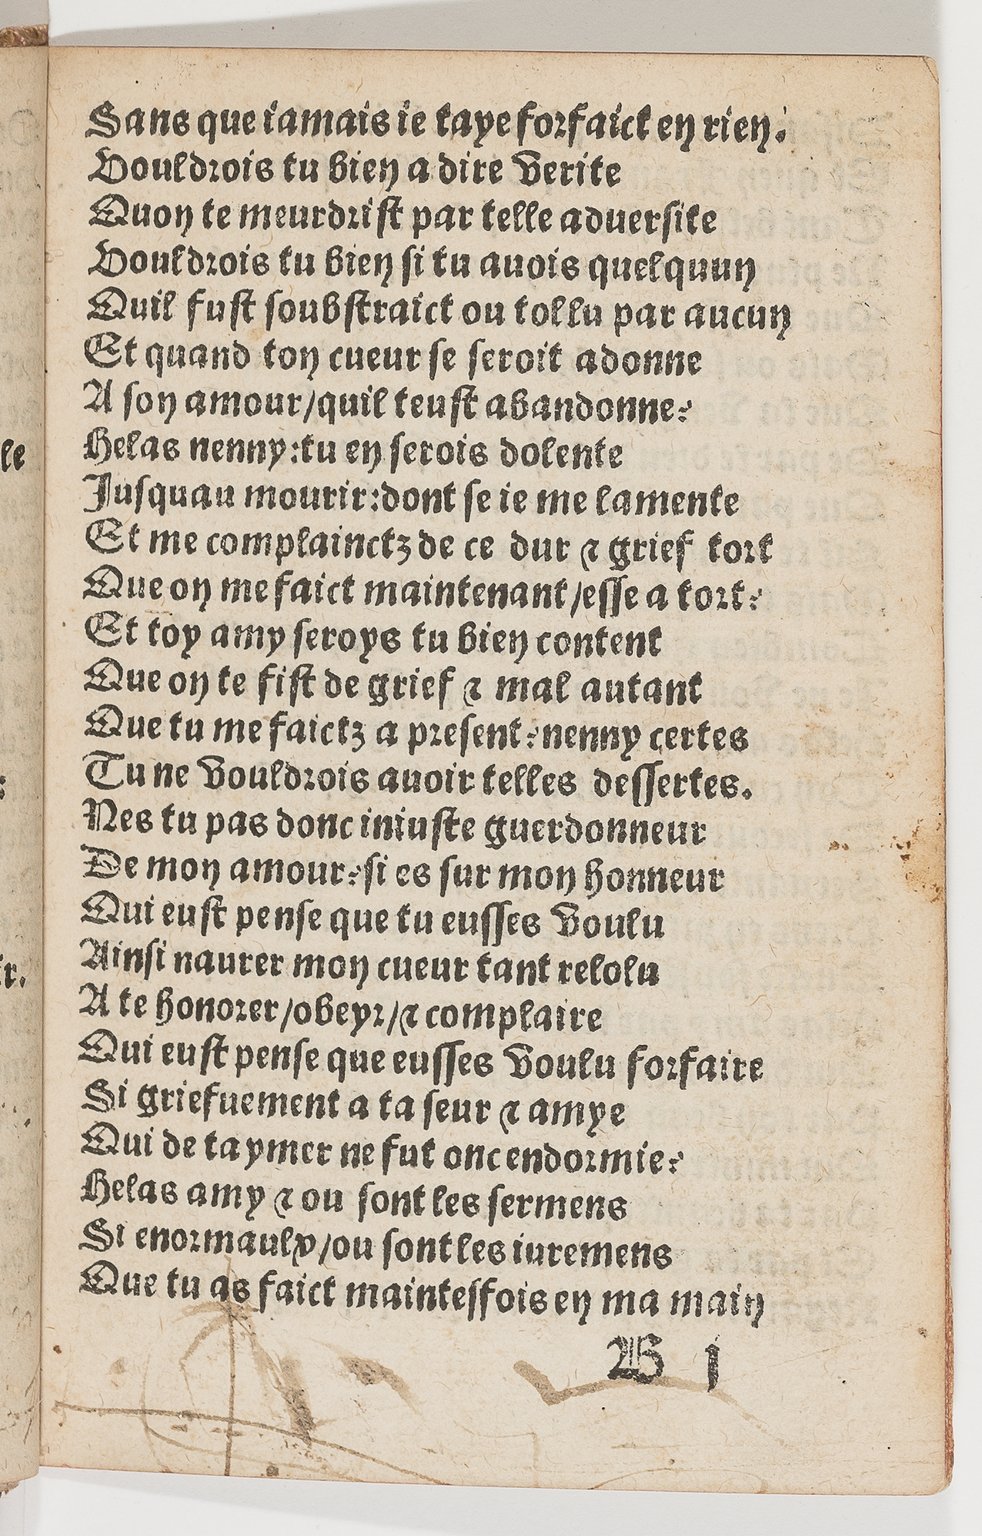 Sans que iamais ie taye forfaict en rien.
Vouldrois tu bien a dire verite
Quon te meurdrist par telle aduersite
Vouldrois tu bien si tu auois quelquun
Quil fust soubstraict ou tollu par aucun
Et quand ton cueur se seroit adonne
A son amour/quil teust abandonne?
Helas nenny:tu en serois dolente
Jusquau mourir:dont se ie me lamente
Et me complainctz de ce dur ⁊ grief tort
Que on me faict maintenant/esse a tort?
Et toy amy seroys tu bien content
Que on te fist de grief ⁊ mal autant
Que tu me faictz a present?nenny certes
Tu ne vouldrois auoir telles dessertes.
Nes tu pas donc iniuste guerdonneur
De mon amour?si es sur mon honneur
Qui eust pense que tu eusses voulu
Ainsi naurer mon cueur tant relolu
A te honorer/obeyr/⁊ complaire
Qui eust pense que eusses voulu forfaire
Si griefuement a ta seur ⁊ amye
Qui de taymer ne fut onc endormie?
Helas amy ⁊ ou sont les sermens
Si enormaulx/ou sont les iuremens
Que tu as faict maintesfois en ma main
B j
le
:
r.